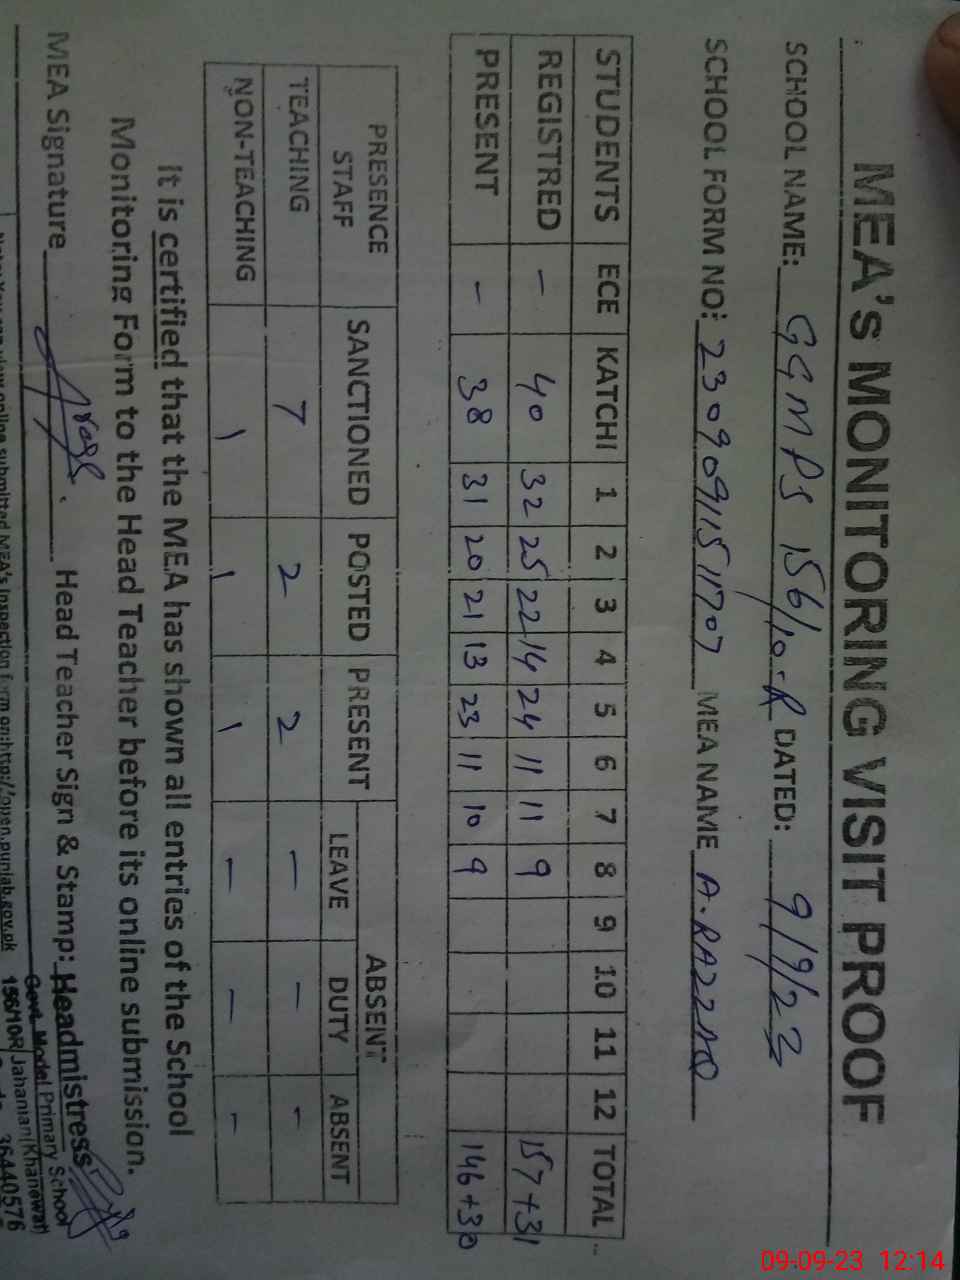 MEA's MONITORING VISIT PROOF
SCHOOL NAME: GGMPS 156/10-R DATED: 9/9/23
SCHOOL FORM NO: 23090911511707 MEA NAME A. RAZZAQ
STUDENTS ECE KATCHI 1 2 3 4 5 6 7 8 9 10 11 12 TOTAL
REGISTRED - 40 32 25 22 14 24 11 11 9 157+31
PRESENT - 38 31 20 21 13 23 11 10 9 146+30
PRESENCE STAFF SANCTIONED POSTED PRESENT ABSENT
LEAVE DUTY ABSENT
TEACHING 7 2 2 - - -
NON-TEACHING 1 1 1 - - -
It is certified that the MEA has shown all entries of the School
Monitoring Form to the Head Teacher before its online submission.
MEA Signature Head Teacher Sign & Stamp: Headmistress
Govt. Model Primary School
156/10R Jahanian (Khanewal)
36440576
Note: You can view online submitted MEA's Inspection form on: http://open.punjab.gov.pk
09-09-23 12:14